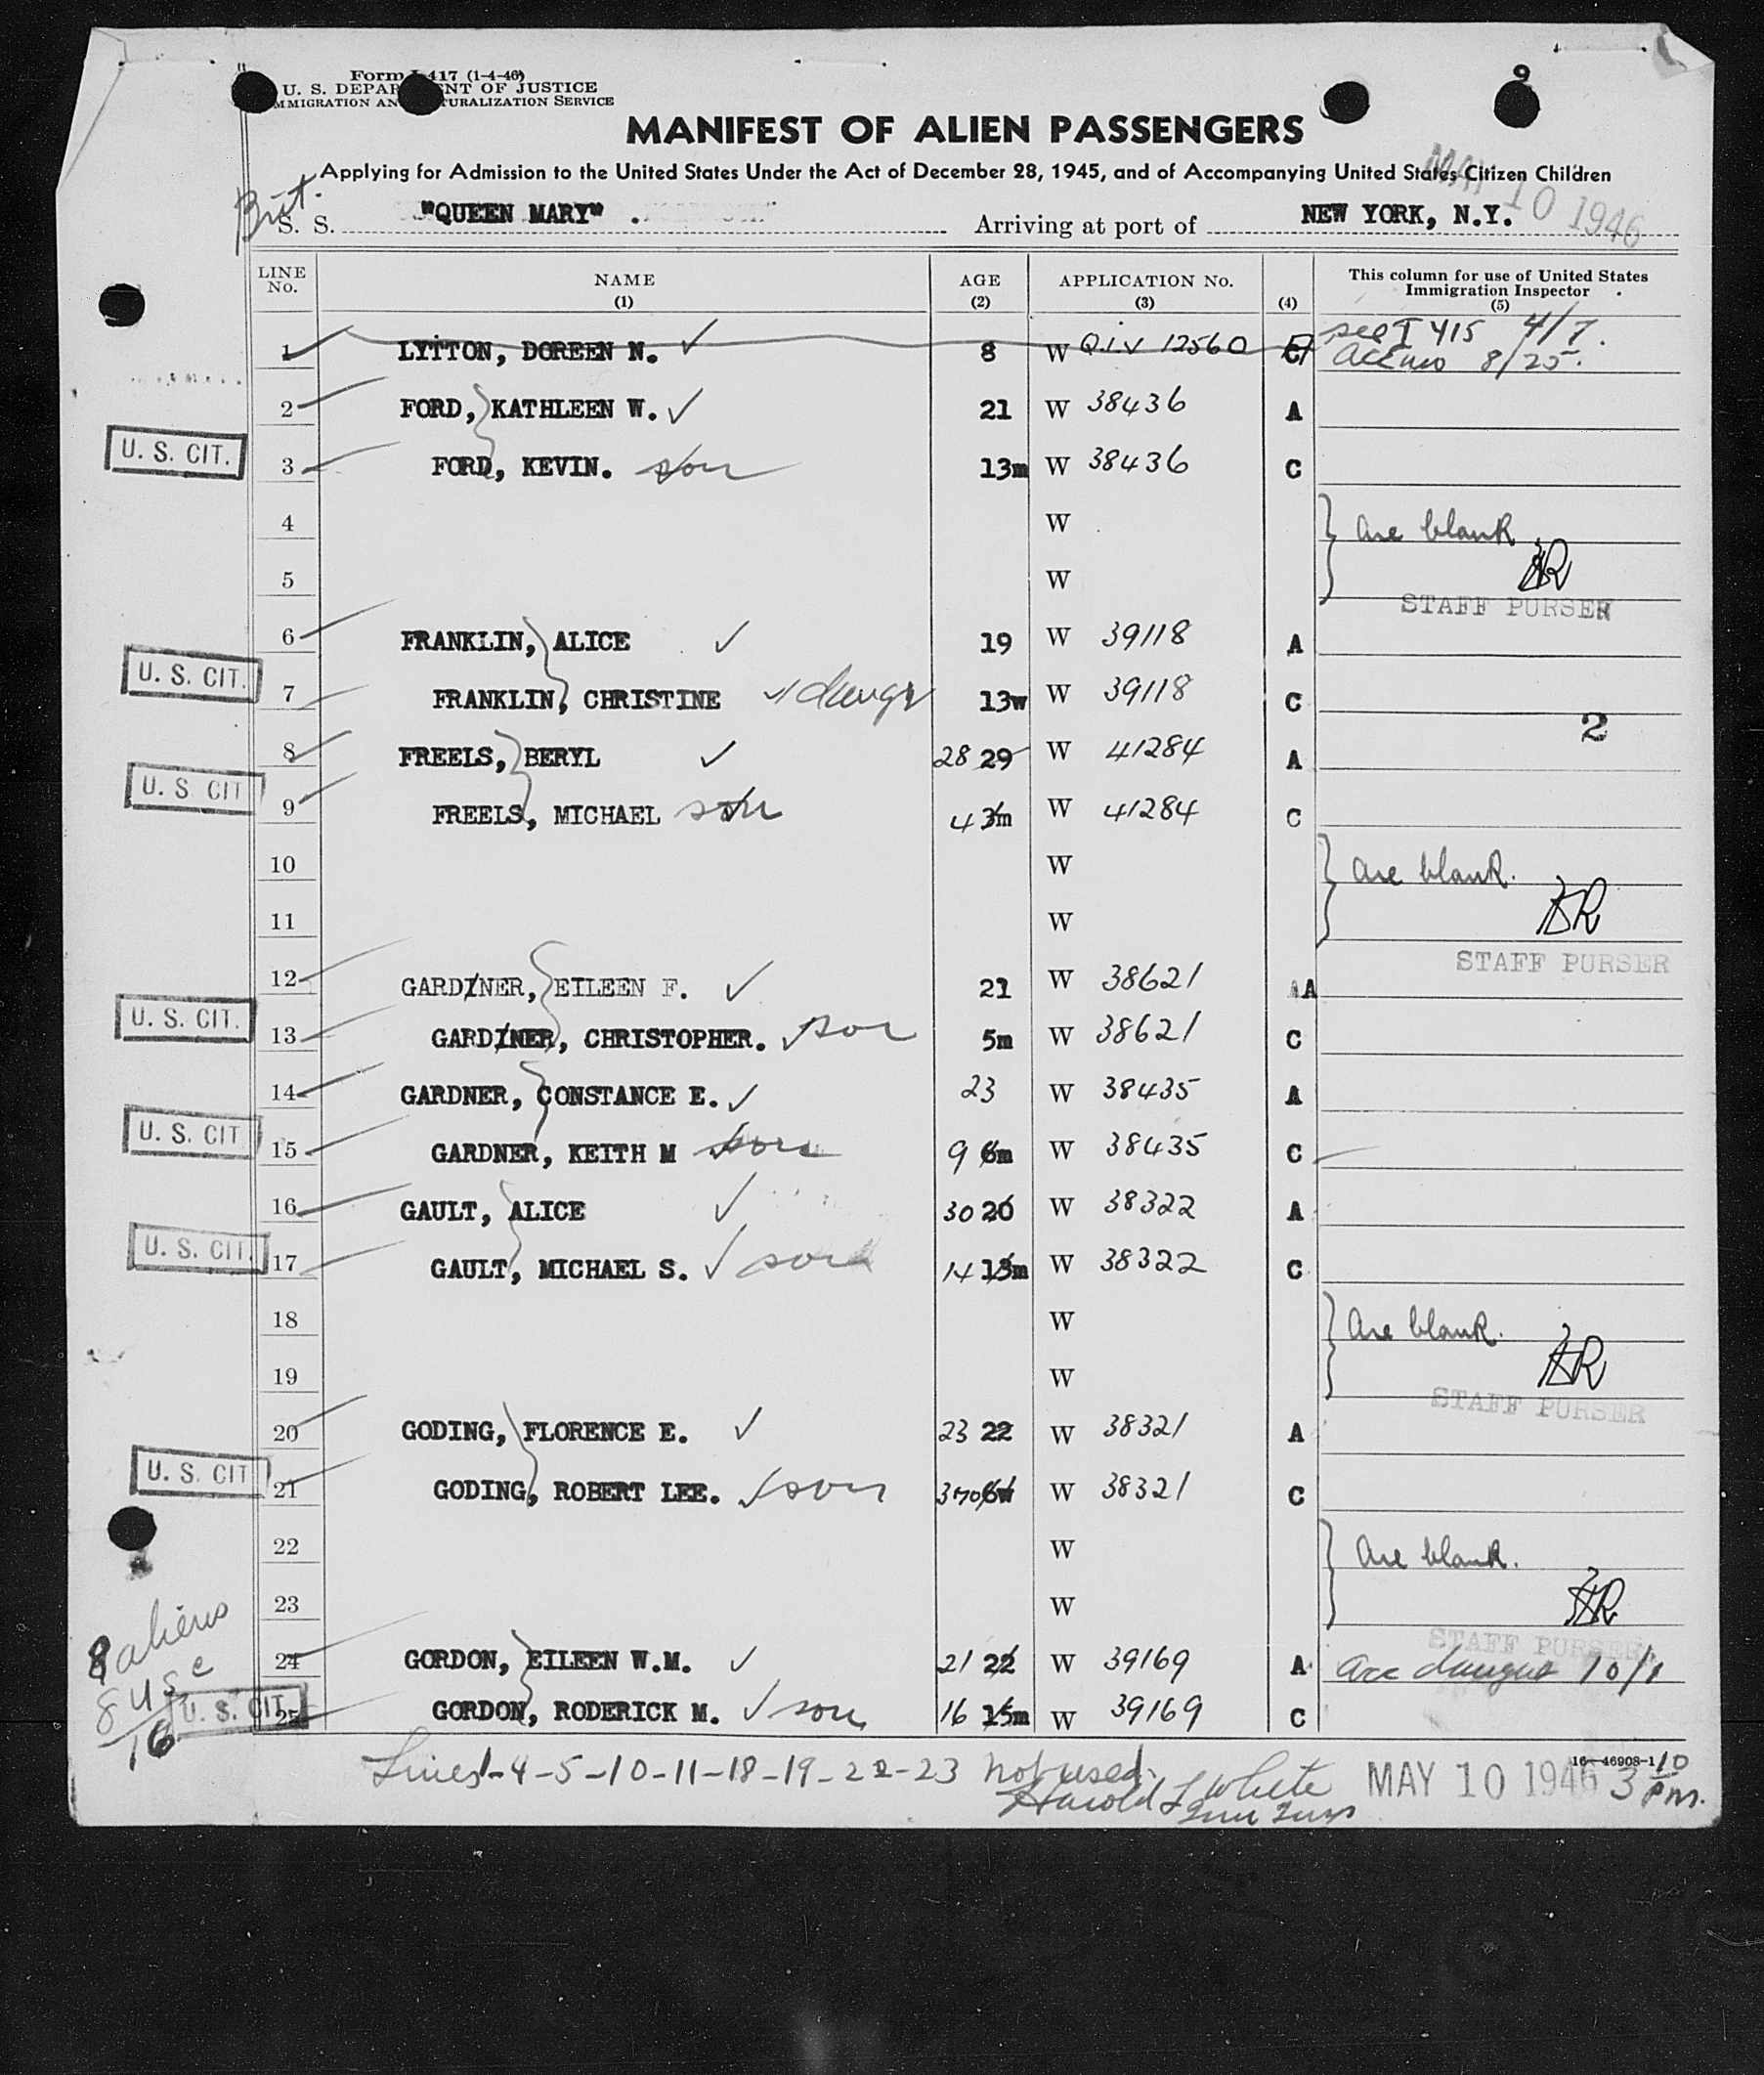 9
Form I-417 (1-4-46)
U. S. DEPARTMENT OF JUSTICE
IMMIGRATION AND NATURALIZATION SERVICE
MANIFEST OF ALIEN PASSENGERS
Applying for Admission to the United States Under the Act of December 28, 1945, and of Accompanying United States Citizen Children
MAY 10 1946
Brit.
S. S. "QUEEN MARY" . Arriving at port of NEW YORK, N.Y.
LINE No. NAME (1) AGE (2) APPLICATION No. (3) (4) This column for use of United States Immigration Inspector (5)
1 LYTTON, DOREEN N. ✓ 8 W Q.i.v 12560 C see I 415 4/7.
8/25.
2 FORD, KATHLEEN W. ✓ 21 W 38436 A
U. S. CIT. 3 FORD, KEVIN. son 13m W 38436 C
4 W are blank
5 W HR
STAFF PURSER
6 FRANKLIN, ALICE ✓ 19 W 39118 A
U. S. CIT. 7 FRANKLIN, CHRISTINE ✓ daugr 13w W 39118 C
2
8 FREELS, BERYL ✓ 28 29 W 41284 A
U. S. CIT 9 FREELS, MICHAEL son 4 3m W 41284 C
10 W are blank.
11 W HR
STAFF PURSER
12 GARDINER, EILEEN F. ✓ 21 W 38621 AA
U. S. CIT. 13 GARDINER, CHRISTOPHER. ✓ son 5m W 38621 C
14 GARDNER, CONSTANCE E. ✓ 23 W 38435 A
U. S. CIT 15 GARDNER, KEITH M son 9 6m W 38435 C
16 GAULT, ALICE ✓ 30 20 W 38322 A
U. S. CIT. 17 GAULT, MICHAEL S. ✓ son 14 13m W 38322 C
18 W are blank.
19 W HR
STAFF PURSER
20 GODING, FLORENCE E. ✓ 23 22 W 38321 A
U. S. CIT 21 GODING, ROBERT LEE. ✓ son 3mo 6w W 38321 C
22 W are blank.
23 W HR
STAFF PURSER
8 aliens
24 GORDON, EILEEN W.M. ✓ 21 22 W 39169 A 10/1
8 USC
U. S. CIT. 25 GORDON, RODERICK M. ✓ son 16 15m W 39169 C
16
16-46908-1
Lines 1-4-5-10-11-18-19-22-23 not used.
Harold L White
MAY 10 1946 3 10 PM.